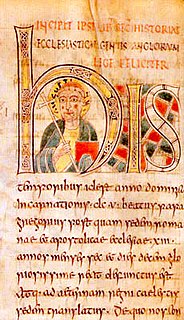 INCIPIT IPSIUS HISTORIAE
ECCLESIASTICAE GENTIS ANGLORUM
FELICITER
hIS
temporibus id est anno domini
incarnationis dc v beatus papa
gregorius postquam sedem roma
nae et apostolicae ecclesiae xiii
annos menses sex et dies decem glo
riosissime rexit defunctus est
atque ad aeternam regni caelestis
sedem translatus De quo nos